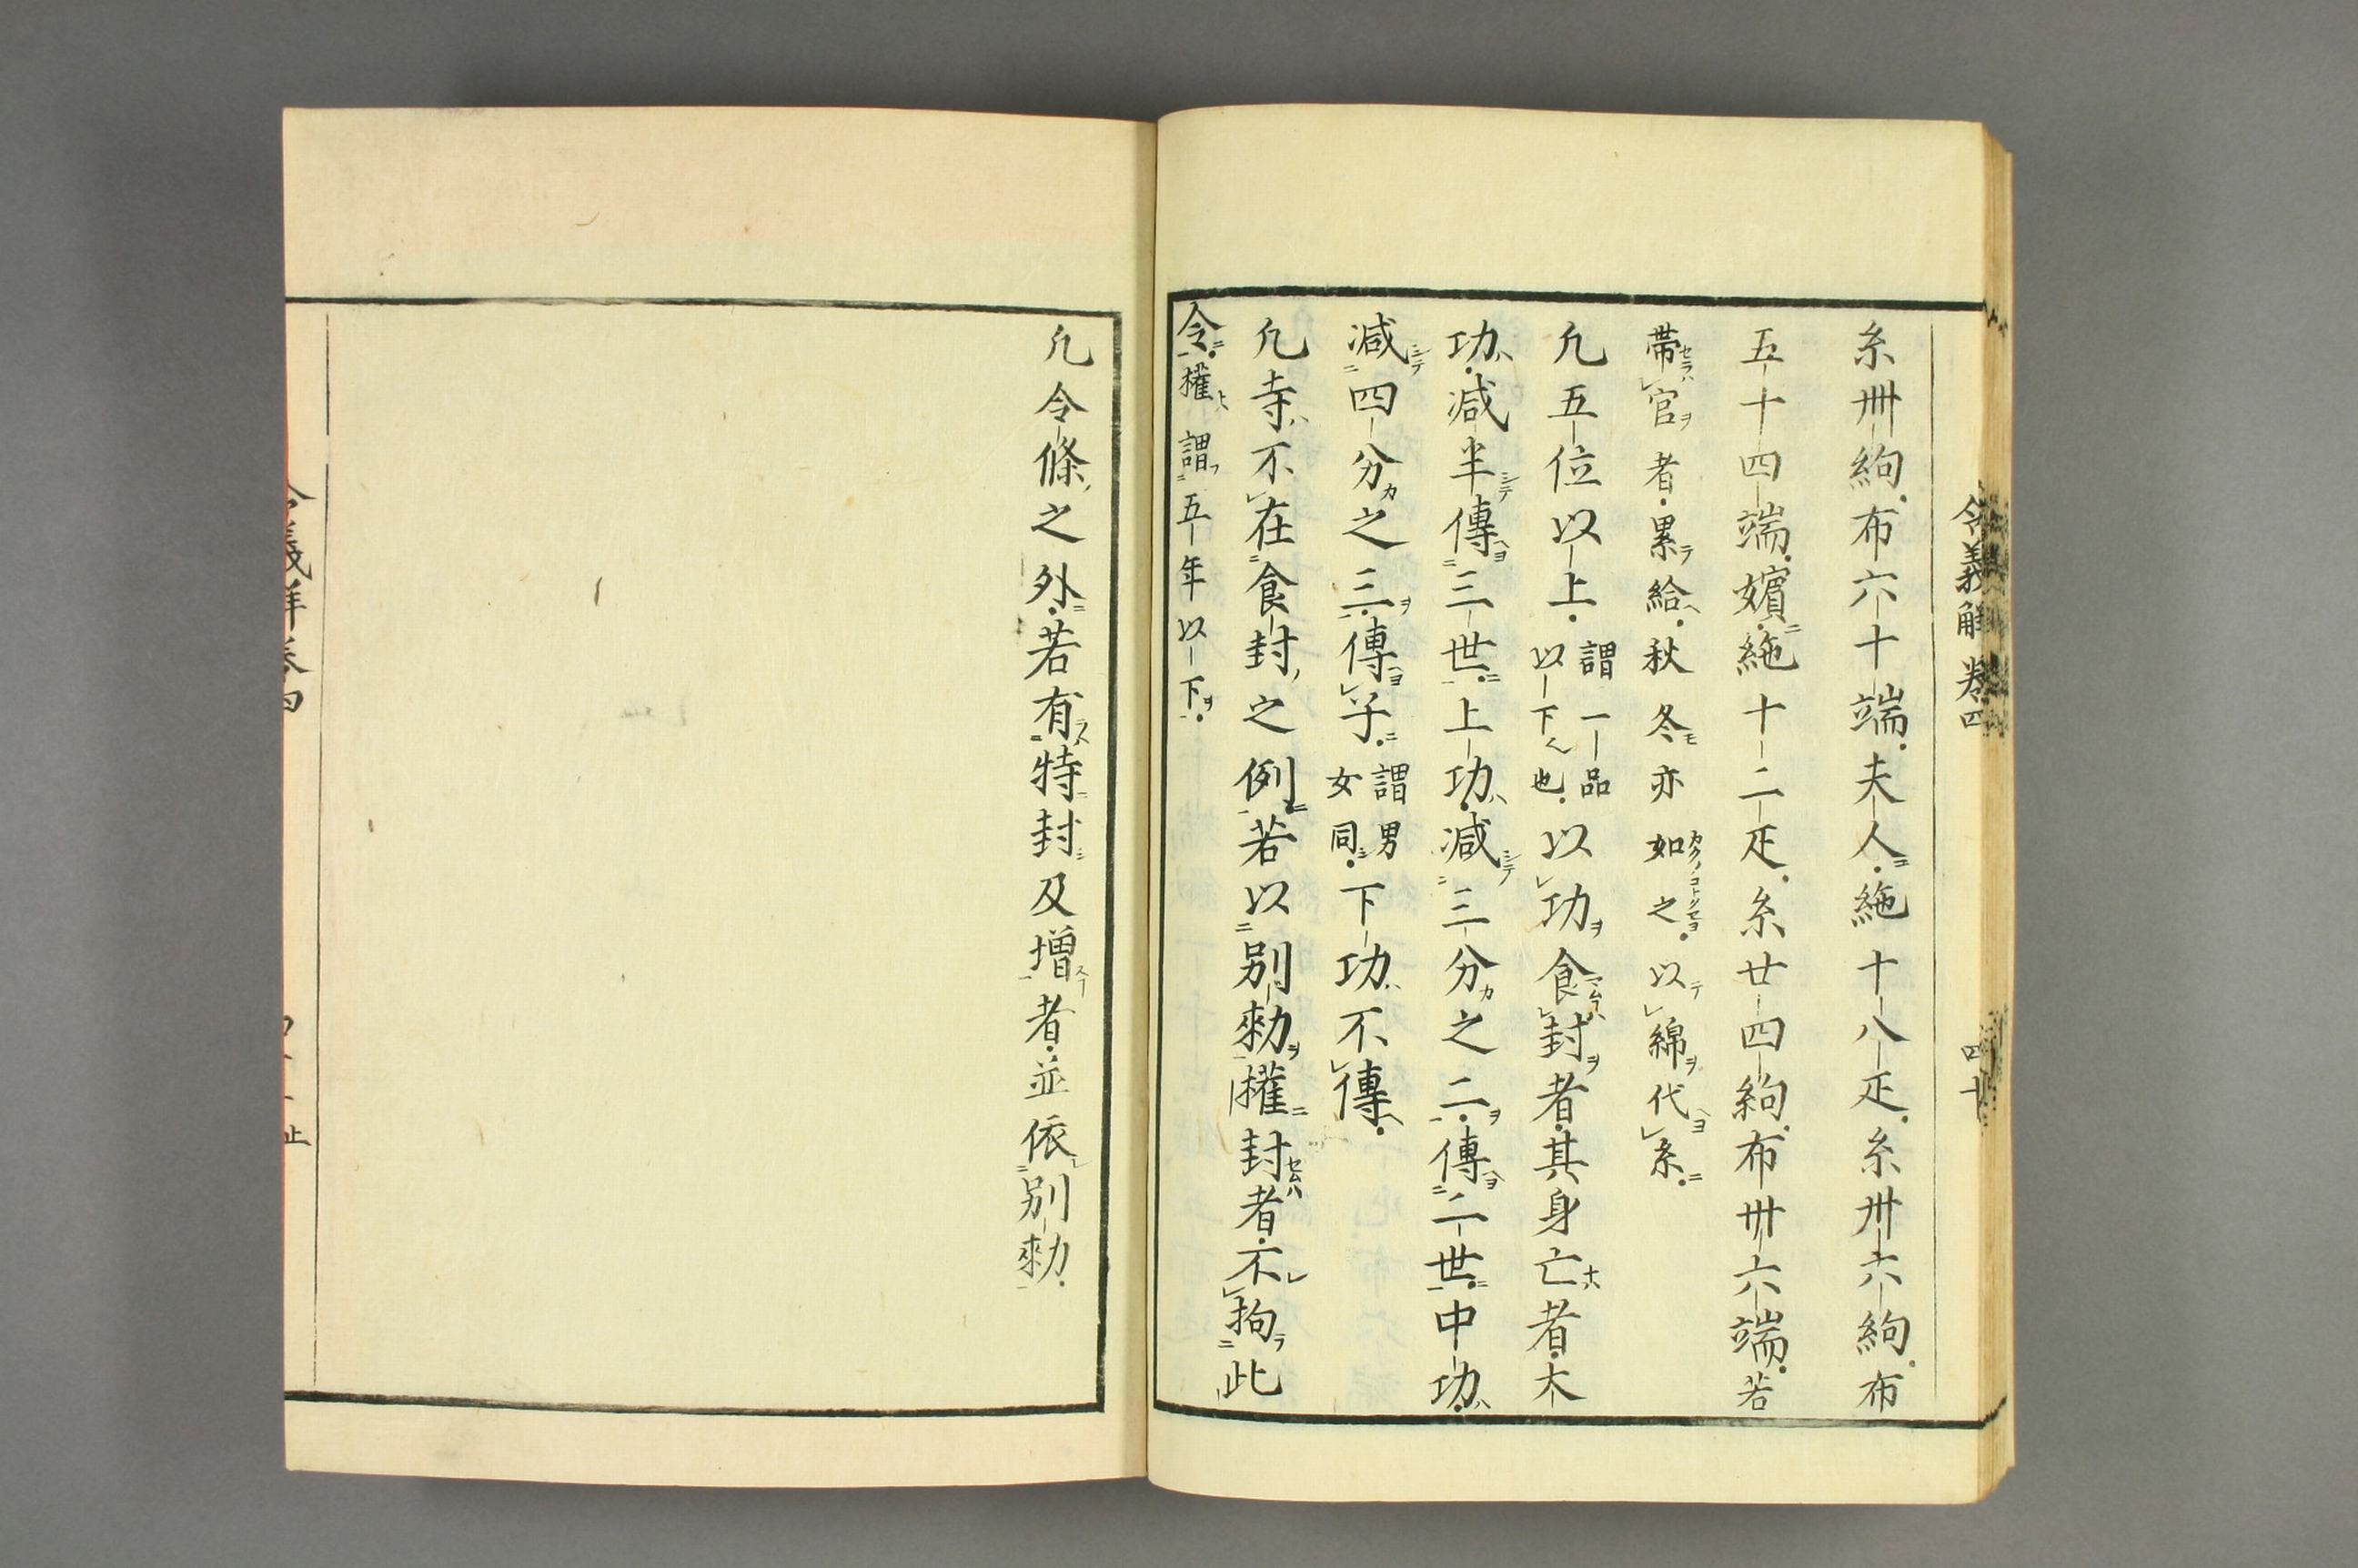 令義解 卷四 四十
糸卌絢布六十端夫人絁十八疋糸卅六絢布
五十四端嬪絁十二疋糸廿四絢布卅六端若
帶官者累給秋冬亦如之以綿代糸
凢五位以上謂一品以下也以功食封者其身亡者大
功減半傳三世上功減三分之二傳二世中功
減四分之三傳子謂男女同下功不傳
凢寺不在食封之例若以別勅權封者不拘此
令權謂五年以下
凢令條之外若有特封及增者並依別勅